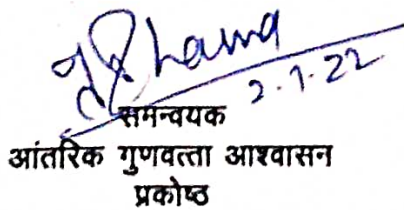 2.7.22
समन्वयक
आंतरिक गुणवत्ता आश्वासन
प्रकोष्ठ